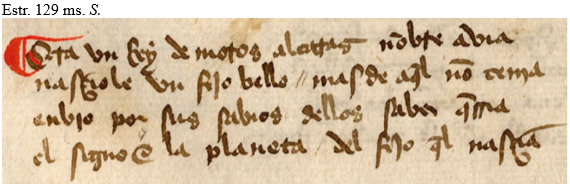 Estr. 129 ms. S.
Era vn Rey de moros alcaras nōbre avia
nasçiole vn fijo bello // mas de aq̄l nō tenia
enbio por sus sabios dellos saber q̄rria
el signo e la planeta del fijo q̄l nasçia